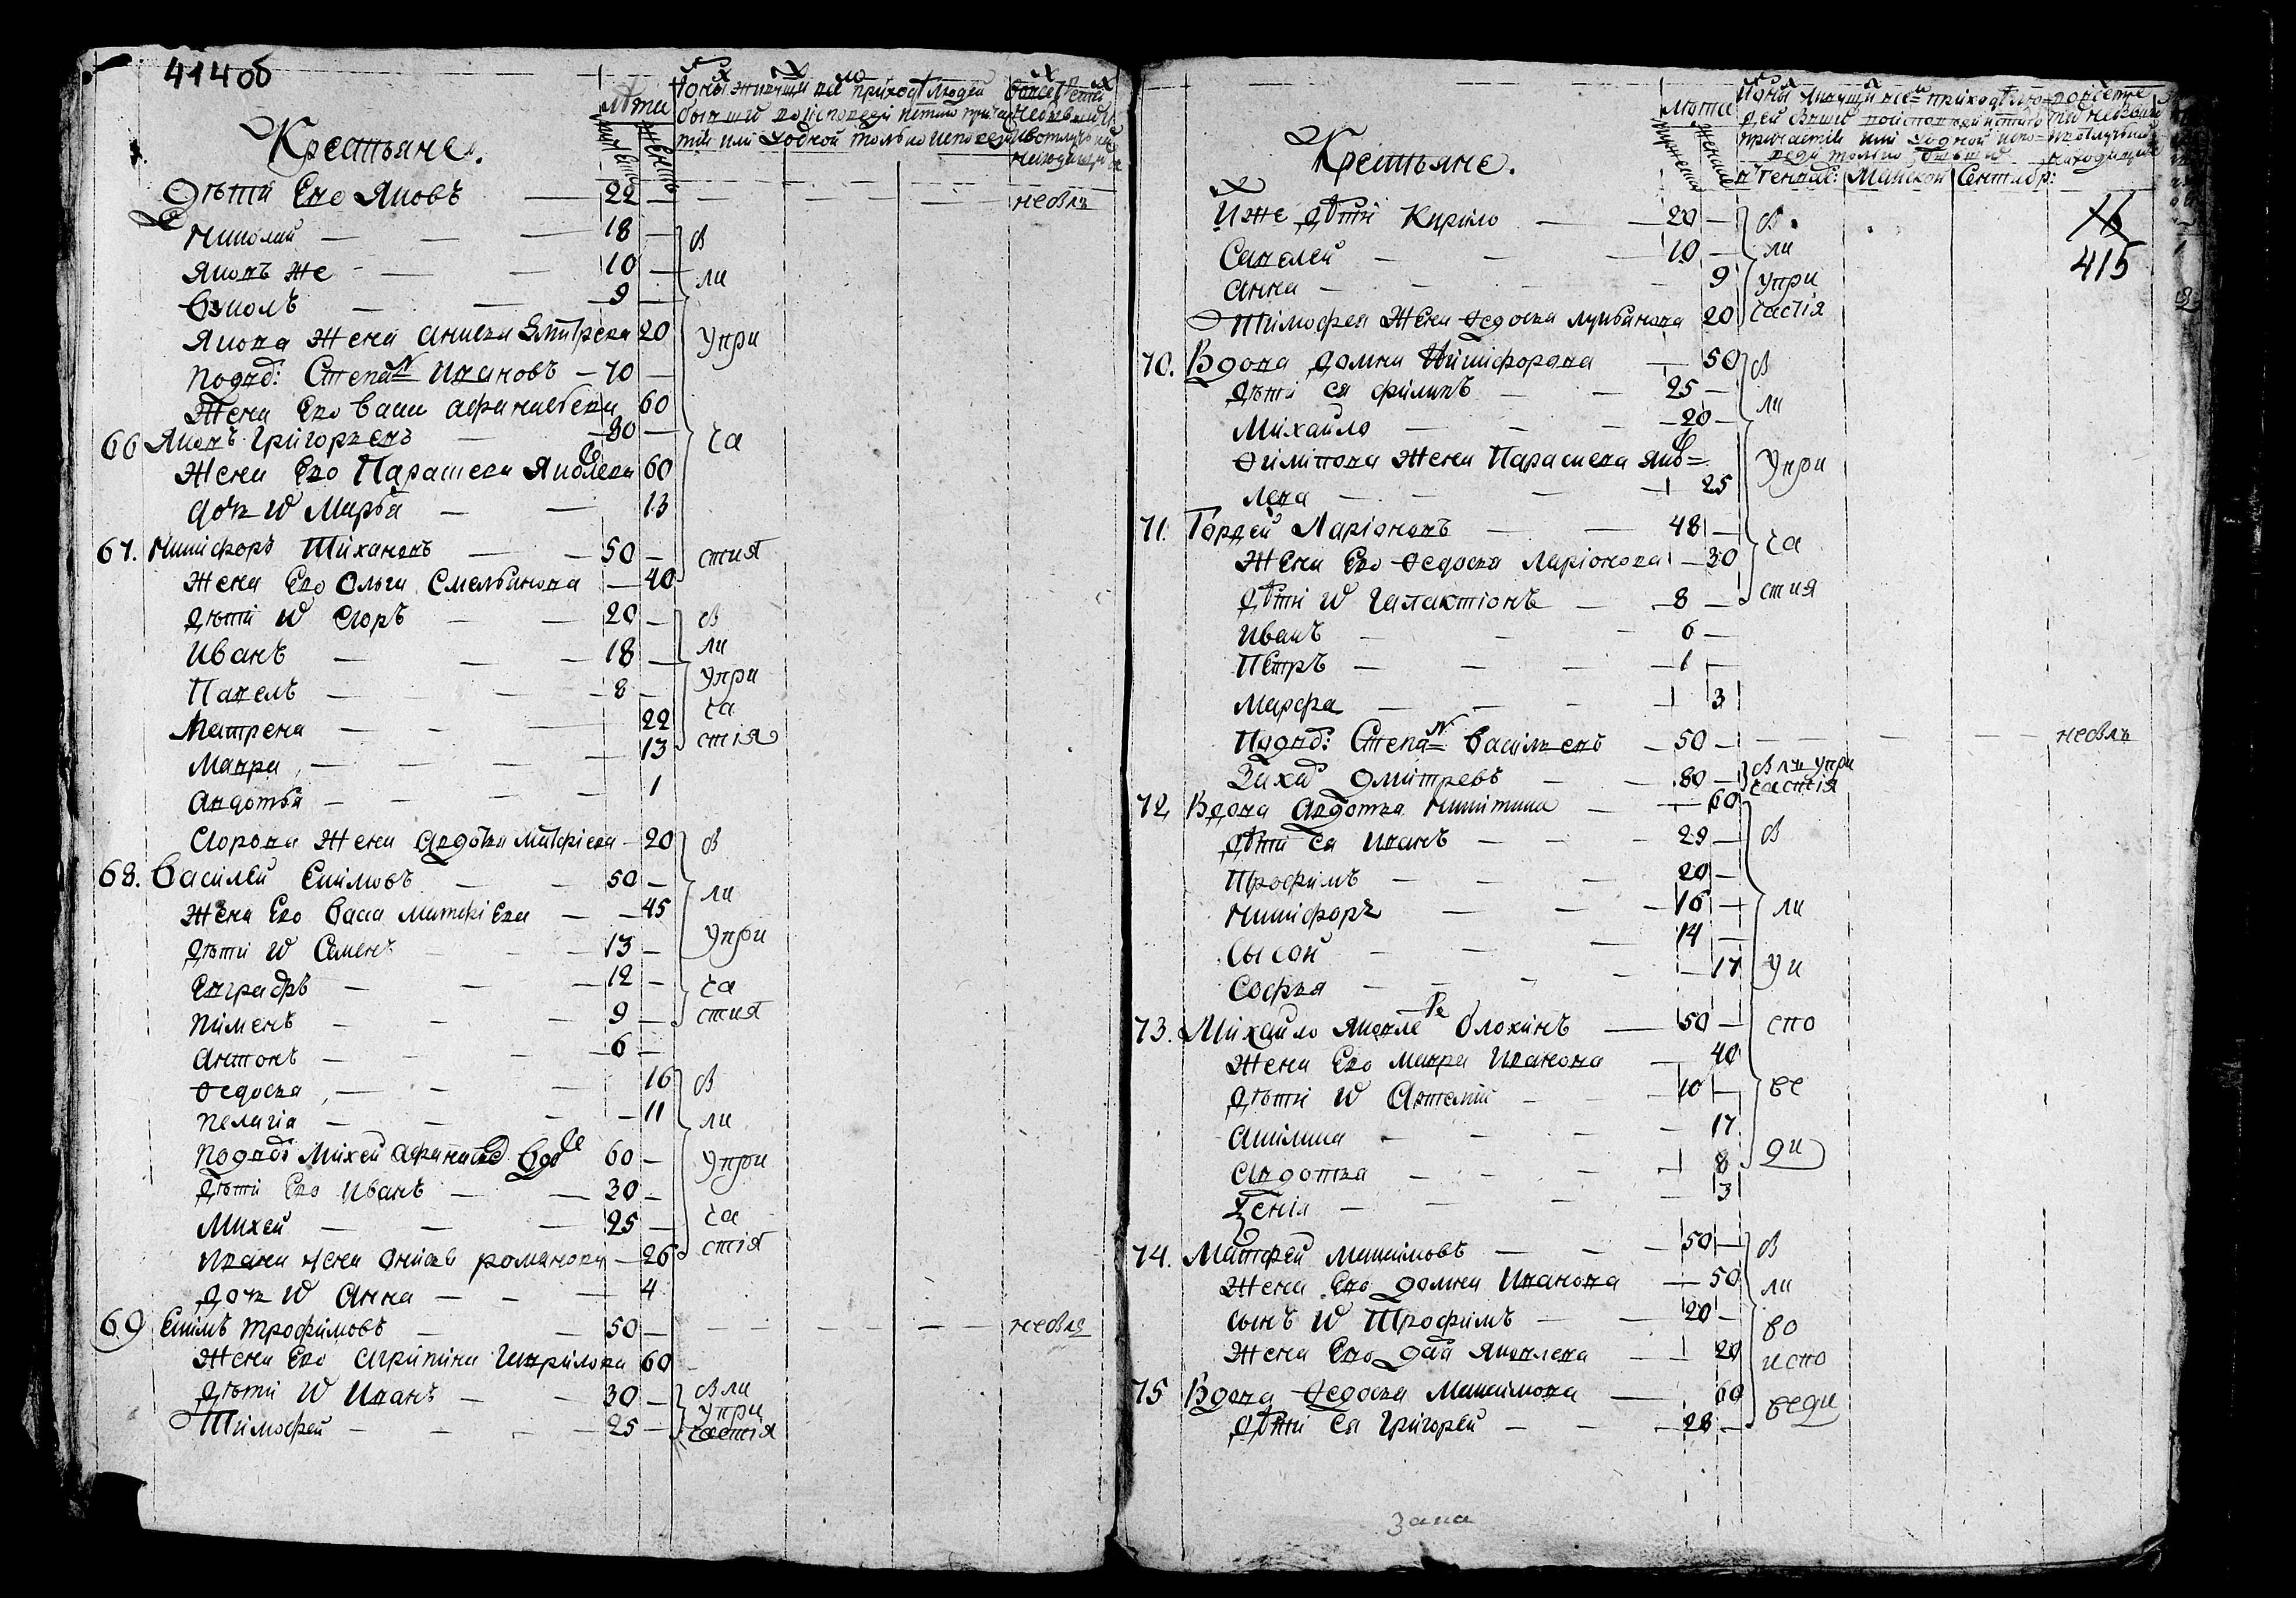 414об
Крестьяне.
Лѣта
Дѣти Его Яковъ — 22 — неявл
Николай — 18 — я
Яковъ же — 10 — ли
Вуколъ — 9 —
Якова жена Анисья Дмитрева 20 упри
Подвд: Степанъ Ивановъ — 70 —
Жена Его Васа Афанасьева 60
66 Яковъ Григорьевъ — 80 — ча
Жена Его Парасковья Яковлева 60
дочь w Марѳа — 13
67. Никифоръ Тихановъ — 50 — стия
Жена Его Ольга Емельянова — 40
Дѣти w Егоръ — 20 — я
Иванъ — 18 — ли
Павелъ — 8 — упри
Матрена — 22 ча
Мавра — 13 стія
Авдотья — 1
Егорова Жена Авдотья Матфіева — 20 я
68. Василей Екимовъ — 50 —
Жена Его Васа Матфіева — 45 ли
Дѣти w Семенъ — 13 — упри
Евграфъ — 12 — ча
Пименъ — 9 — стия
Антонъ — 6 —
Ѳедосья — 16 я
Пелагіа — 11 ли
Подвд: Михей Афанасьевъ вдо 60 — упри
Дѣти Его Иванъ — 30 —
Михей — 25 — ча
Ивана жена Анисья Романова — 26 стія
дочь w Анна — 4
69 Екимъ Трофимовъ — 50 — неявля
Жена Его Агрипина Гаврилова 60
Дѣти w Иванъ — 30 — я ли
Тимофей — 25 — упри частія
415
Крестьяне.
Лѣта
въ Генвар: Майской Сентябр:
Ихже дѣти Кирило — 20 — я
Савелей — 10 — ли
Анна — 9 упри
Тимофея Жена Ѳедосья Лукьянова 20 частія
70. Вдова Домна Никифорова — 50 я
Дѣти ея Филипъ — 25 — ли
Михайло — 20 —
Филипова жена Парасковья Яков= упри
лева — 25
71. Гордей Ларіоновъ — 48 — ча
Жена Его Ѳедосья Ларіонова — 30
Дѣти w Галактіонъ — 8 — стия
Иванъ — 6 —
Петръ — 1 —
Марфа — 3
Подвд: Степанъ Васильевъ — 50 — неявль
Захаръ Дмитревъ — 80 — я ли упри частія
72. Вдова Авдотья Никитина — 60
Дѣти ея Иванъ — 29 — я
Трофимъ — 20 —
Никифоръ — 16 — ли
Сысой — 14 —
Софья — 17 уи
73. Михайло Яковле Блохинъ — 50 — спо
Жена Его Мавра Иванова — 40
Дѣти w Артемій — 10 — ве
Акилина — 17
Авдотья — 8 ди
Ксеніа — 3
74. Матфей Макимовъ — 50 — я
Жена Его Домна Иванова — 50 ли
сынъ w Трофимъ — 20 — во
Жена Его Дарья Яковлева — 20 испо
75 Вдова Ѳедосья Макимова — 60 веди
Дѣти ея Григорей — 28 —